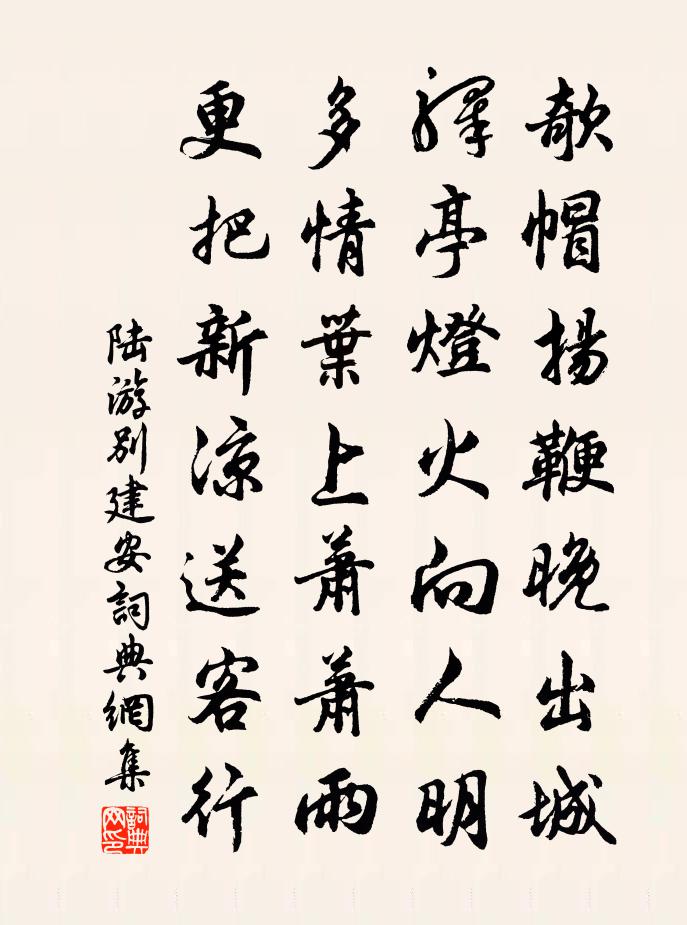 欹帽揚鞭晚出城
驛亭燈火向人明
多情葉上蕭蕭雨
更把新涼送客行
陸游別建安詞典網集
詞典网印